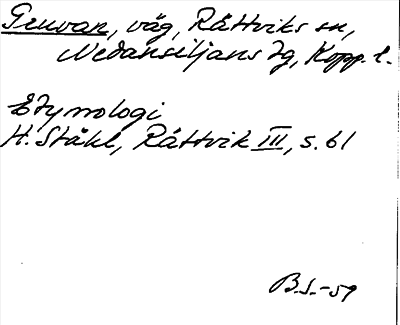 Gruvan, väg, Rättviks sn,
Nedansiljans tg, Kopp. l.
Etymologi
H. Ståhl, Rättvik III, s. 61
B.S.-59